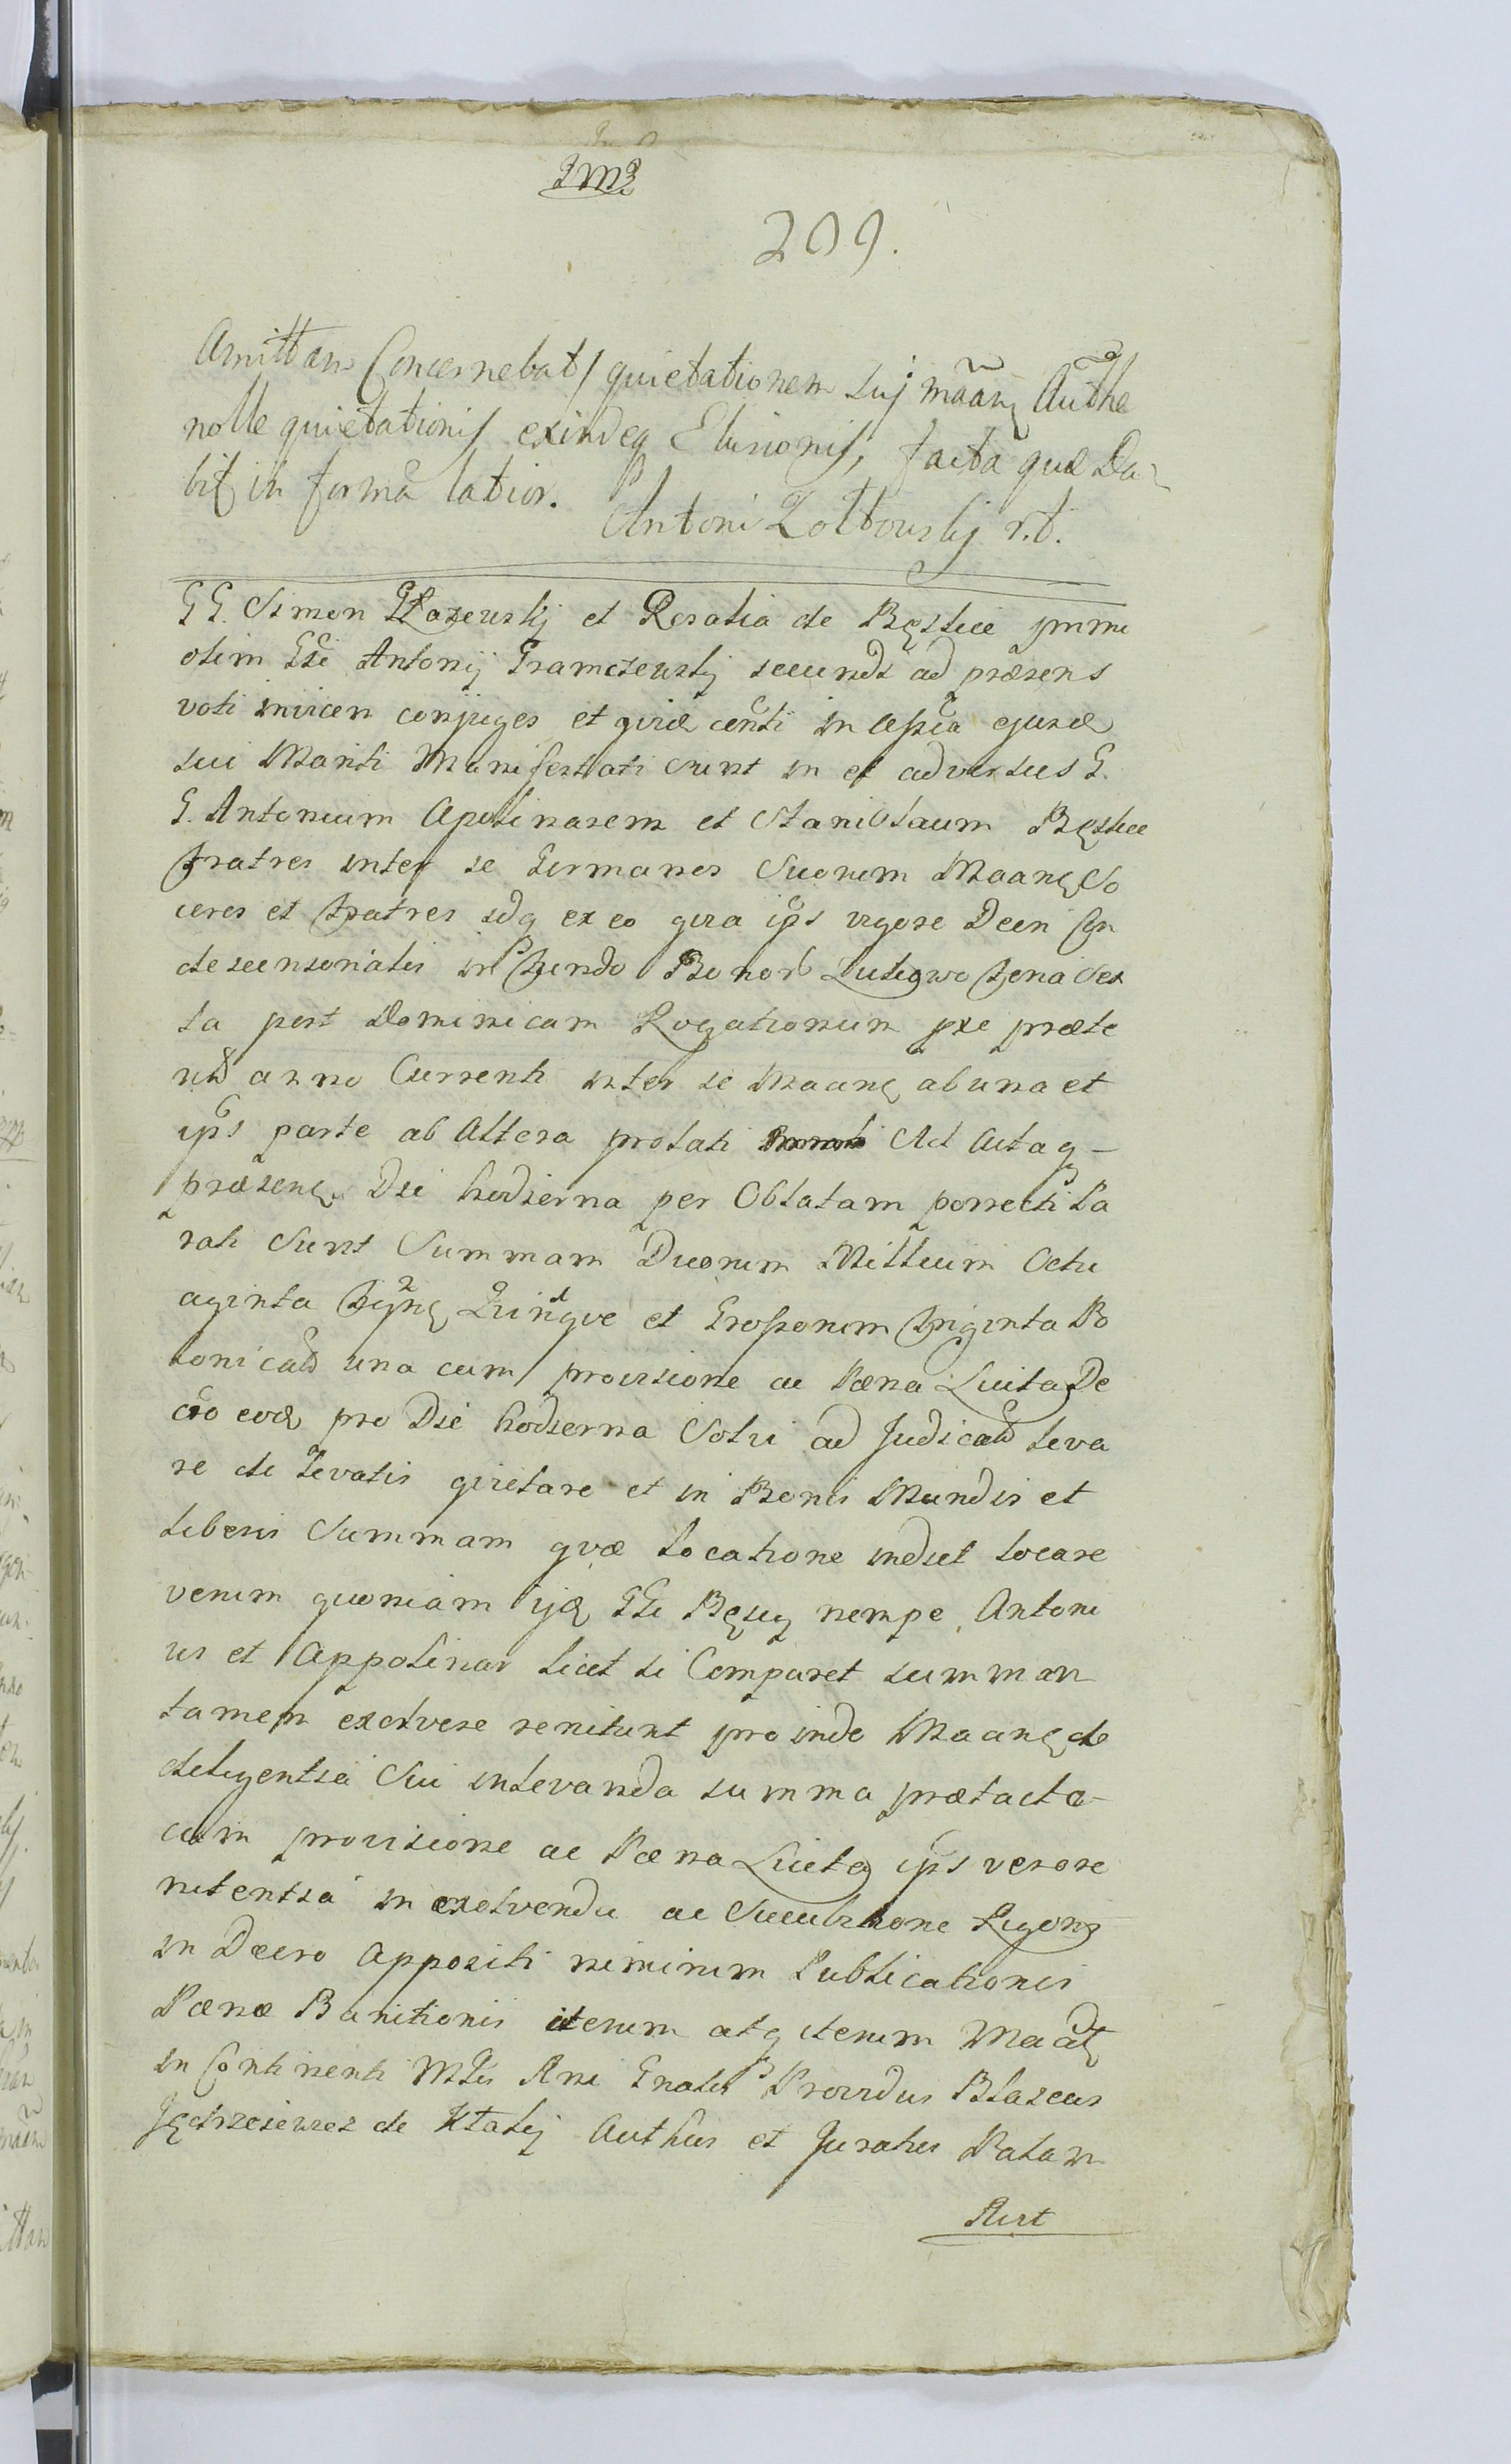 209.
Amittan Concernebat quietationem suj maãnq Auth
nolle quietationis exindeq Elusionis, facta quæ Da-
bit in forma latior.
Antoni Zoltowskij r.t.
GG. Simon Płazewskij et Rosalia de Bęskie primi
olim Gsi Antonij Gramczewskij secundi ad præsens
voti invicem conjuges et qvid centi in assia ejusd
sui Mariti Manifestati sunt in et adversus G.
G. Antonium Apolinarem et Stanislaum Bęskie
fratres inter se Germanos Suorum Maanq So
ceros et fratres idq ex eo qvia ips vigore Decri Con
descensorialis in fundo Bonor Lutegwo feria Sex
ta post Dominicam Rogationum pxe præte
rita anno Currenti inter se Maanq ab una et
ips parte ab altera prolati Ad Acta q-
præsenq Die hodierna per Oblatam porrecti Pa
rati Sunt Summam Duorum Millium Octu
aginta Quinqve et Grossorum Triginta Po
lonicalu una cum provisione ac Pæna Luita De
cro eod pro Die hodierna Solvi ad Judicatu leva
re de Levatis qvietare et in Bonis Mundis et
liberis Summam qvæ locatione indiet locare
verum quoniam ijd GG Bęscy nempe Antoni
us et Appolinar licet si Comparet summam
tamen exolvere renitunt proinde Maanq de
deligentia Sui in levanda summa prætacta
cum provisione ac Pæna Luita ips vero re
nitentia in exolvendu ac Succubitione Rigoris
in Decro Appositi nimirum Publicationis
Pænæ Banitionis iterum atq iterum Maat
in Continenti Mtis Ani Gnalis Providus Blazeus
Jędrzeiewicz de Kłaly Authus et Juratus Palam
Rest